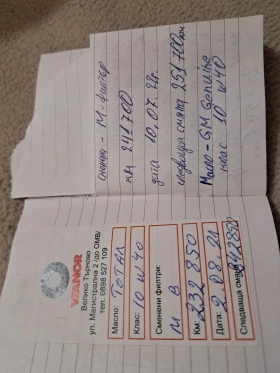 смяна - М. филтър
км 241700
дата 10.07.22г.
следваща смяна 251700км
Масло - GM Genuine
клас 10 W40
VIANOR
Велико Търново
ул. Магистрална 2 /до ОМВ/
тел. 0898 527 109
Масло: ТОТАЛ
Клас: 10 W 40
Сменени филтри:
М В
Км: 232 850
Дата: 2.08.21
Следваща смяна: 242850